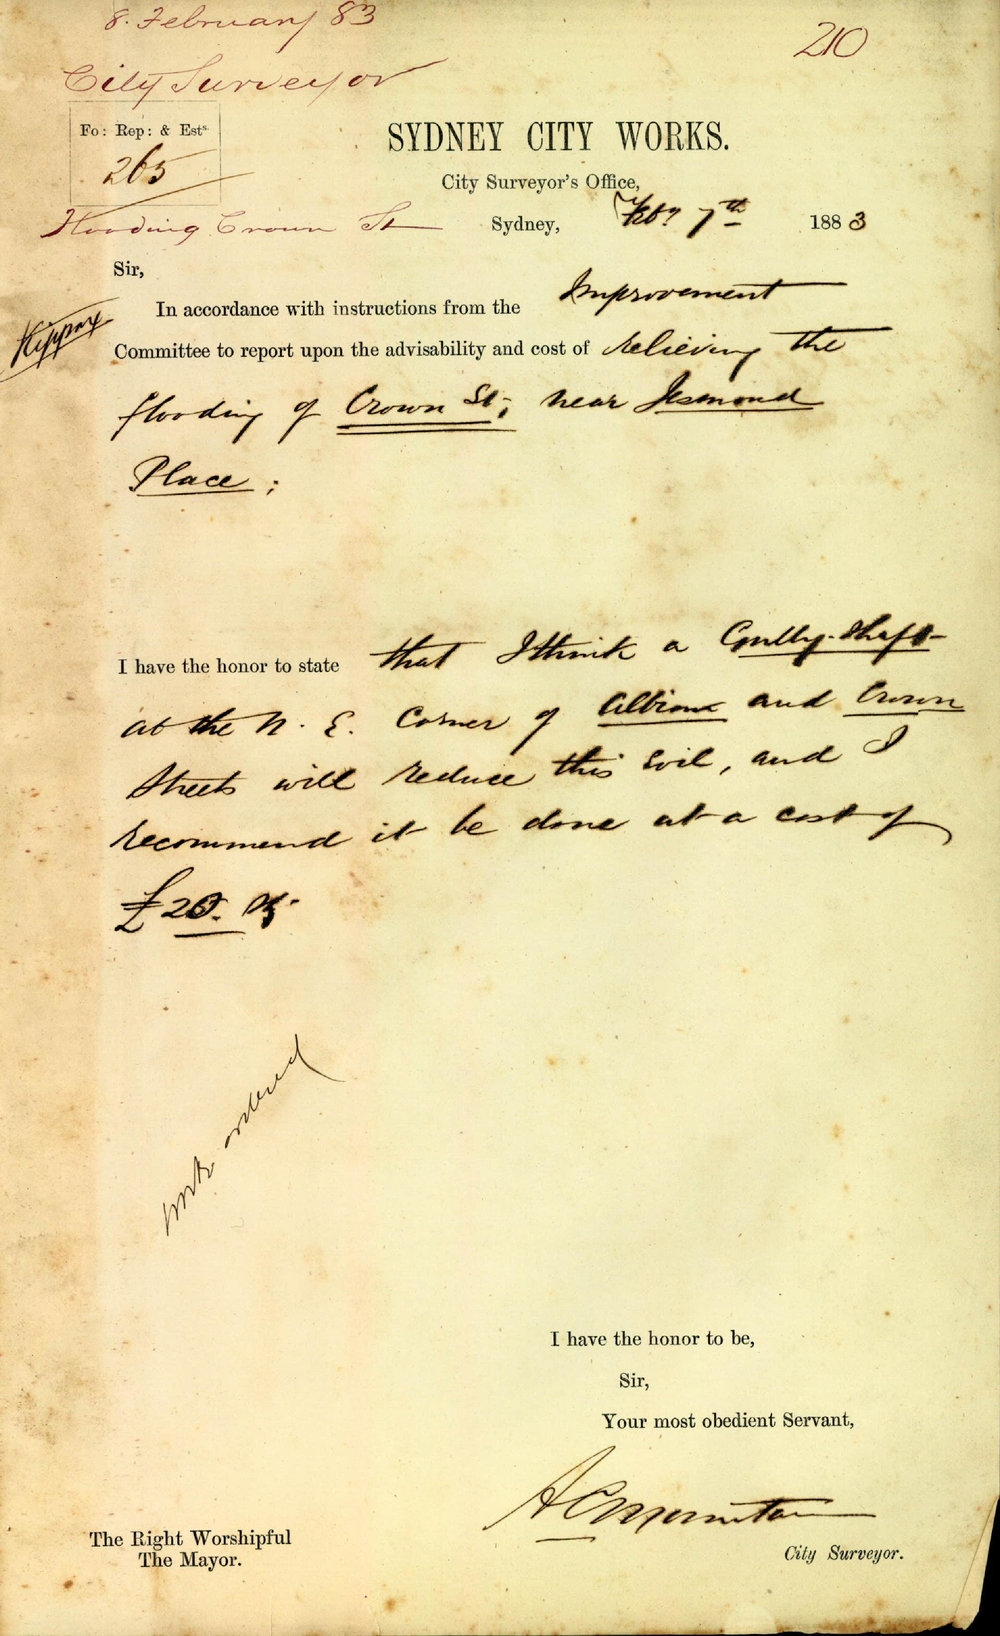 8. February 83
210
City Surveyor
Fo: Rep: & Ests.
265
SYDNEY CITY WORKS.
City Surveyor's Office,
Flooding Crown St
Sydney, Feby 7th 1883
Sir,
In accordance with instructions from the Improvement
Kippax
Committee to report upon the advisability and cost of relieving the
flooding of Crown St; near Jesmond
Place;
I have the honor to state that I think a Gully-shaft
at the N. E. Corner of Albion and Crown
Streets will reduce this evil, and I
recommend it be done at a cost of
£20.
work ordered
I have the honor to be,
Sir,
Your most obedient Servant,
A C Mountain
City Surveyor.
The Right Worshipful
The Mayor.